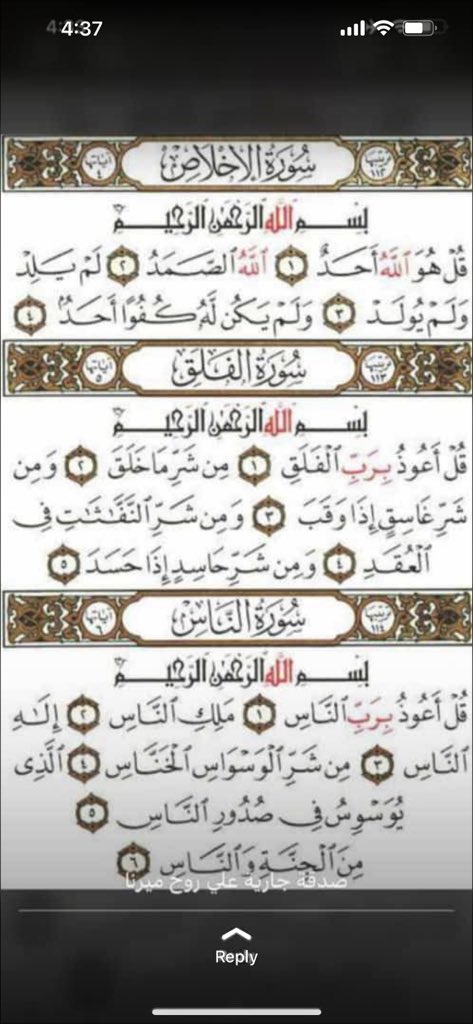 4:37
ترتيبها ١١٢ سُورَةُ الإِخْلَاصِ آياتها ٤
بِسْمِ اللَّهِ الرَّحْمَٰنِ الرَّحِيمِ
قُلْ هُوَ ٱللَّهُ أَحَدٌ ١ ٱللَّهُ ٱلصَّمَدُ ٢ لَمْ يَلِدْ
وَلَمْ يُولَدْ ٣ وَلَمْ يَكُن لَّهُۥ كُفُوًا أَحَدٌۢ ٤
ترتيبها ١١٣ سُورَةُ الفَلَقِ آياتها ٥
بِسْمِ اللَّهِ الرَّحْمَٰنِ الرَّحِيمِ
قُلْ أَعُوذُ بِرَبِّ ٱلْفَلَقِ ١ مِن شَرِّ مَا خَلَقَ ٢ وَمِن
شَرِّ غَاسِقٍ إِذَا وَقَبَ ٣ وَمِن شَرِّ ٱلنَّفَّٰثَٰتِ فِى
ٱلْعُقَدِ ٤ وَمِن شَرِّ حَاسِدٍ إِذَا حَسَدَ ٥
ترتيبها ١١٤ سُورَةُ النَّاسِ آياتها ٦
بِسْمِ اللَّهِ الرَّحْمَٰنِ الرَّحِيمِ
قُلْ أَعُوذُ بِرَبِّ ٱلنَّاسِ ١ مَلِكِ ٱلنَّاسِ ٢ إِلَٰهِ
ٱلنَّاسِ ٣ مِن شَرِّ ٱلْوَسْوَاسِ ٱلْخَنَّاسِ ٤ ٱلَّذِى
يُوَسْوِسُ فِى صُدُورِ ٱلنَّاسِ ٥
مِنَ ٱلْجِنَّةِ وَٱلنَّاسِ ٦
صدقة جارية علي روح ميرنا
Reply